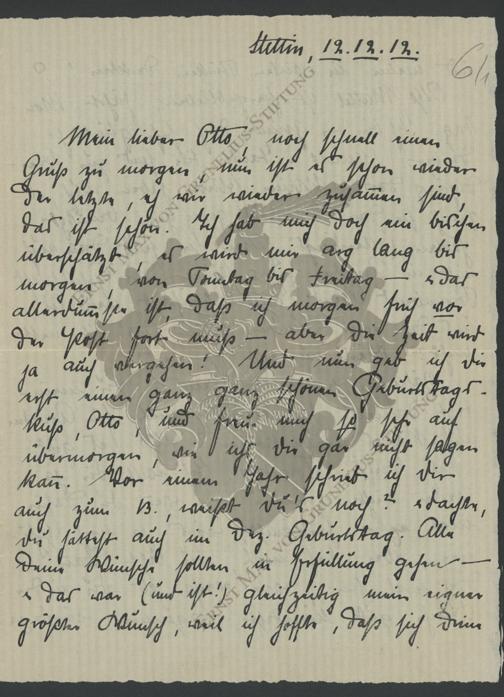 Stettin, 12.12.12.
6/1
Mein lieber Otto, noch schnell einen
Gruß zu morgen, nun ist es schon wieder
der letzte, eh wir wieder zusamen sind,
das ist schön. Ich hab mich doch ein bischen
überschätzt, es wird mir arg lang bis
morgen, von Sonntag bis Freitag — das
allerdümste ist, daß ich morgen früh vor
der Post fort muß — aber die Zeit wird
ja auch vergehen! Und nun geb ich dir
erst einen ganz ganz schönen Geburtstags-
kuß, Otto, und freu mich so sehr auf
übermorgen, wie ichs dir gar nicht sagen
kan. Vor einem Jahr schrieb ich dir
auch zum 13., weißt du's noch? dachte,
du hättest auch im Dez. Geburtstag. Alle
Deine Wünsche sollten in Erfüllung gehen —
das war (und ist!) gleichzeitig mein eigner
größter Wunsch, weil ich hoffte, daß sich Deine
ERNST MAX VON GRUNELIUS-STIFTUNG
ERNST MAX VON GRUNELIUS-STIFTUNG